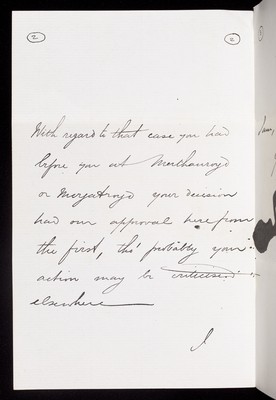 2 2
With regard to that case you had
before you at
or Murgatroyd your decision
had our approval here from
the first, tho' probably your
action may be criticised
elsewhere
I